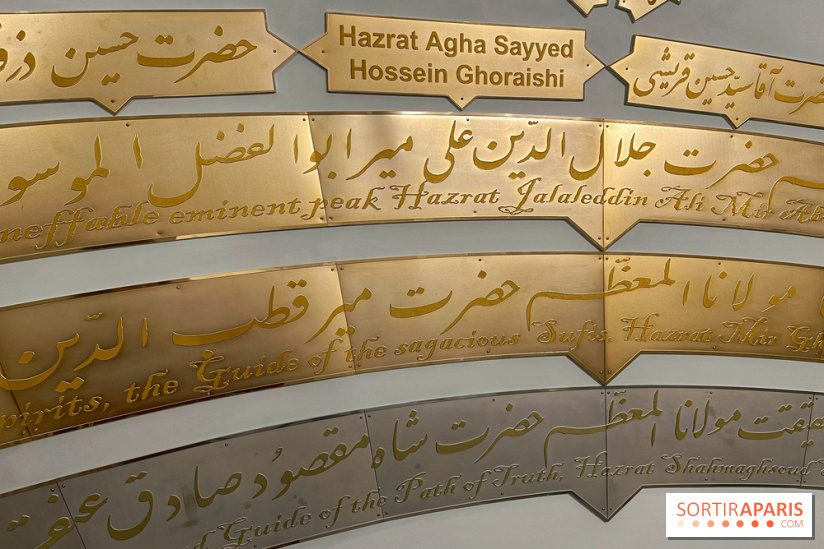 حضرت حسین
Hazrat Agha Sayyed
Hossein Ghoraishi
حضرت آقا سیّد حسین قریشی
حضرت جلال الدّین علی میر ابوالفضل
ineffable eminent peak Hazrat Jalaleddin Ali Mir
مولانا المعظّم حضرت میر قطب الدّین
the Guide of the sagacious Sufis, Hazrat Mir
مولانا المعظّم حضرت شاه مقصود صادق
Guide of the Path of Truth, Hazrat Shahmaghsoud
SORTIRAPARIS
.COM